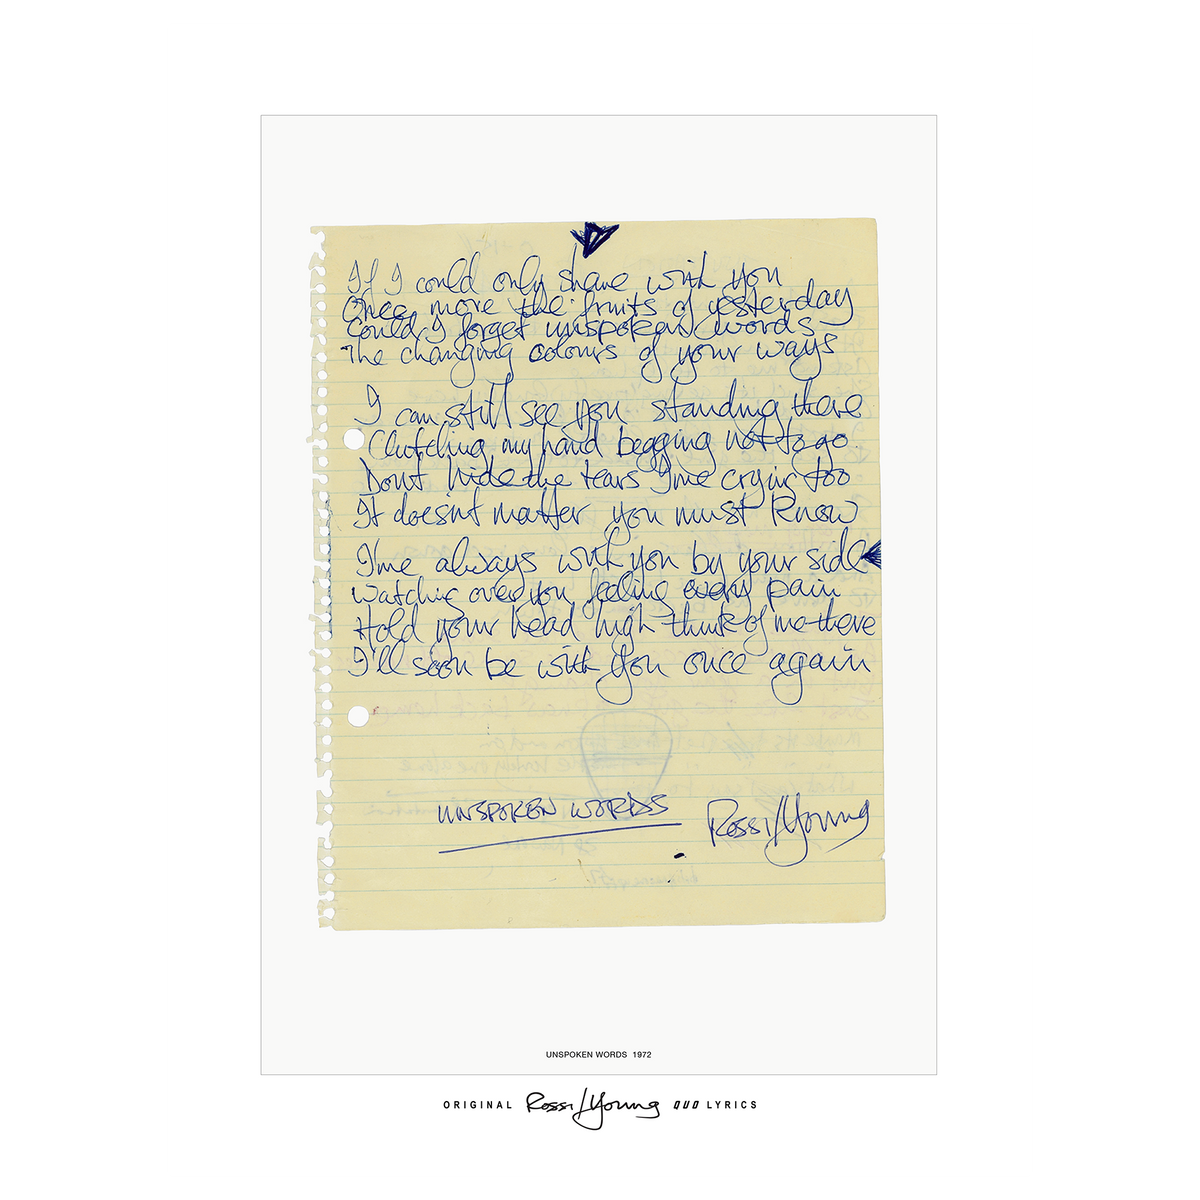 If I could only share with you
Once more the fruits of yesterday
Could I forget unspoken words
The changing colours of your ways
I can still see you standing there
Clutching my hand begging not to go
Dont hide the tears I'me cryin too
It doesnt matter you must know
I'me always with you by your side
Watching over you feeling every pain
Hold your head high think of me there
I'll soon be with you once again
UNSPOKEN WORDS
Rossi/Young
UNSPOKEN WORDS 1972
ORIGINAL Rossi/Young QUO LYRICS